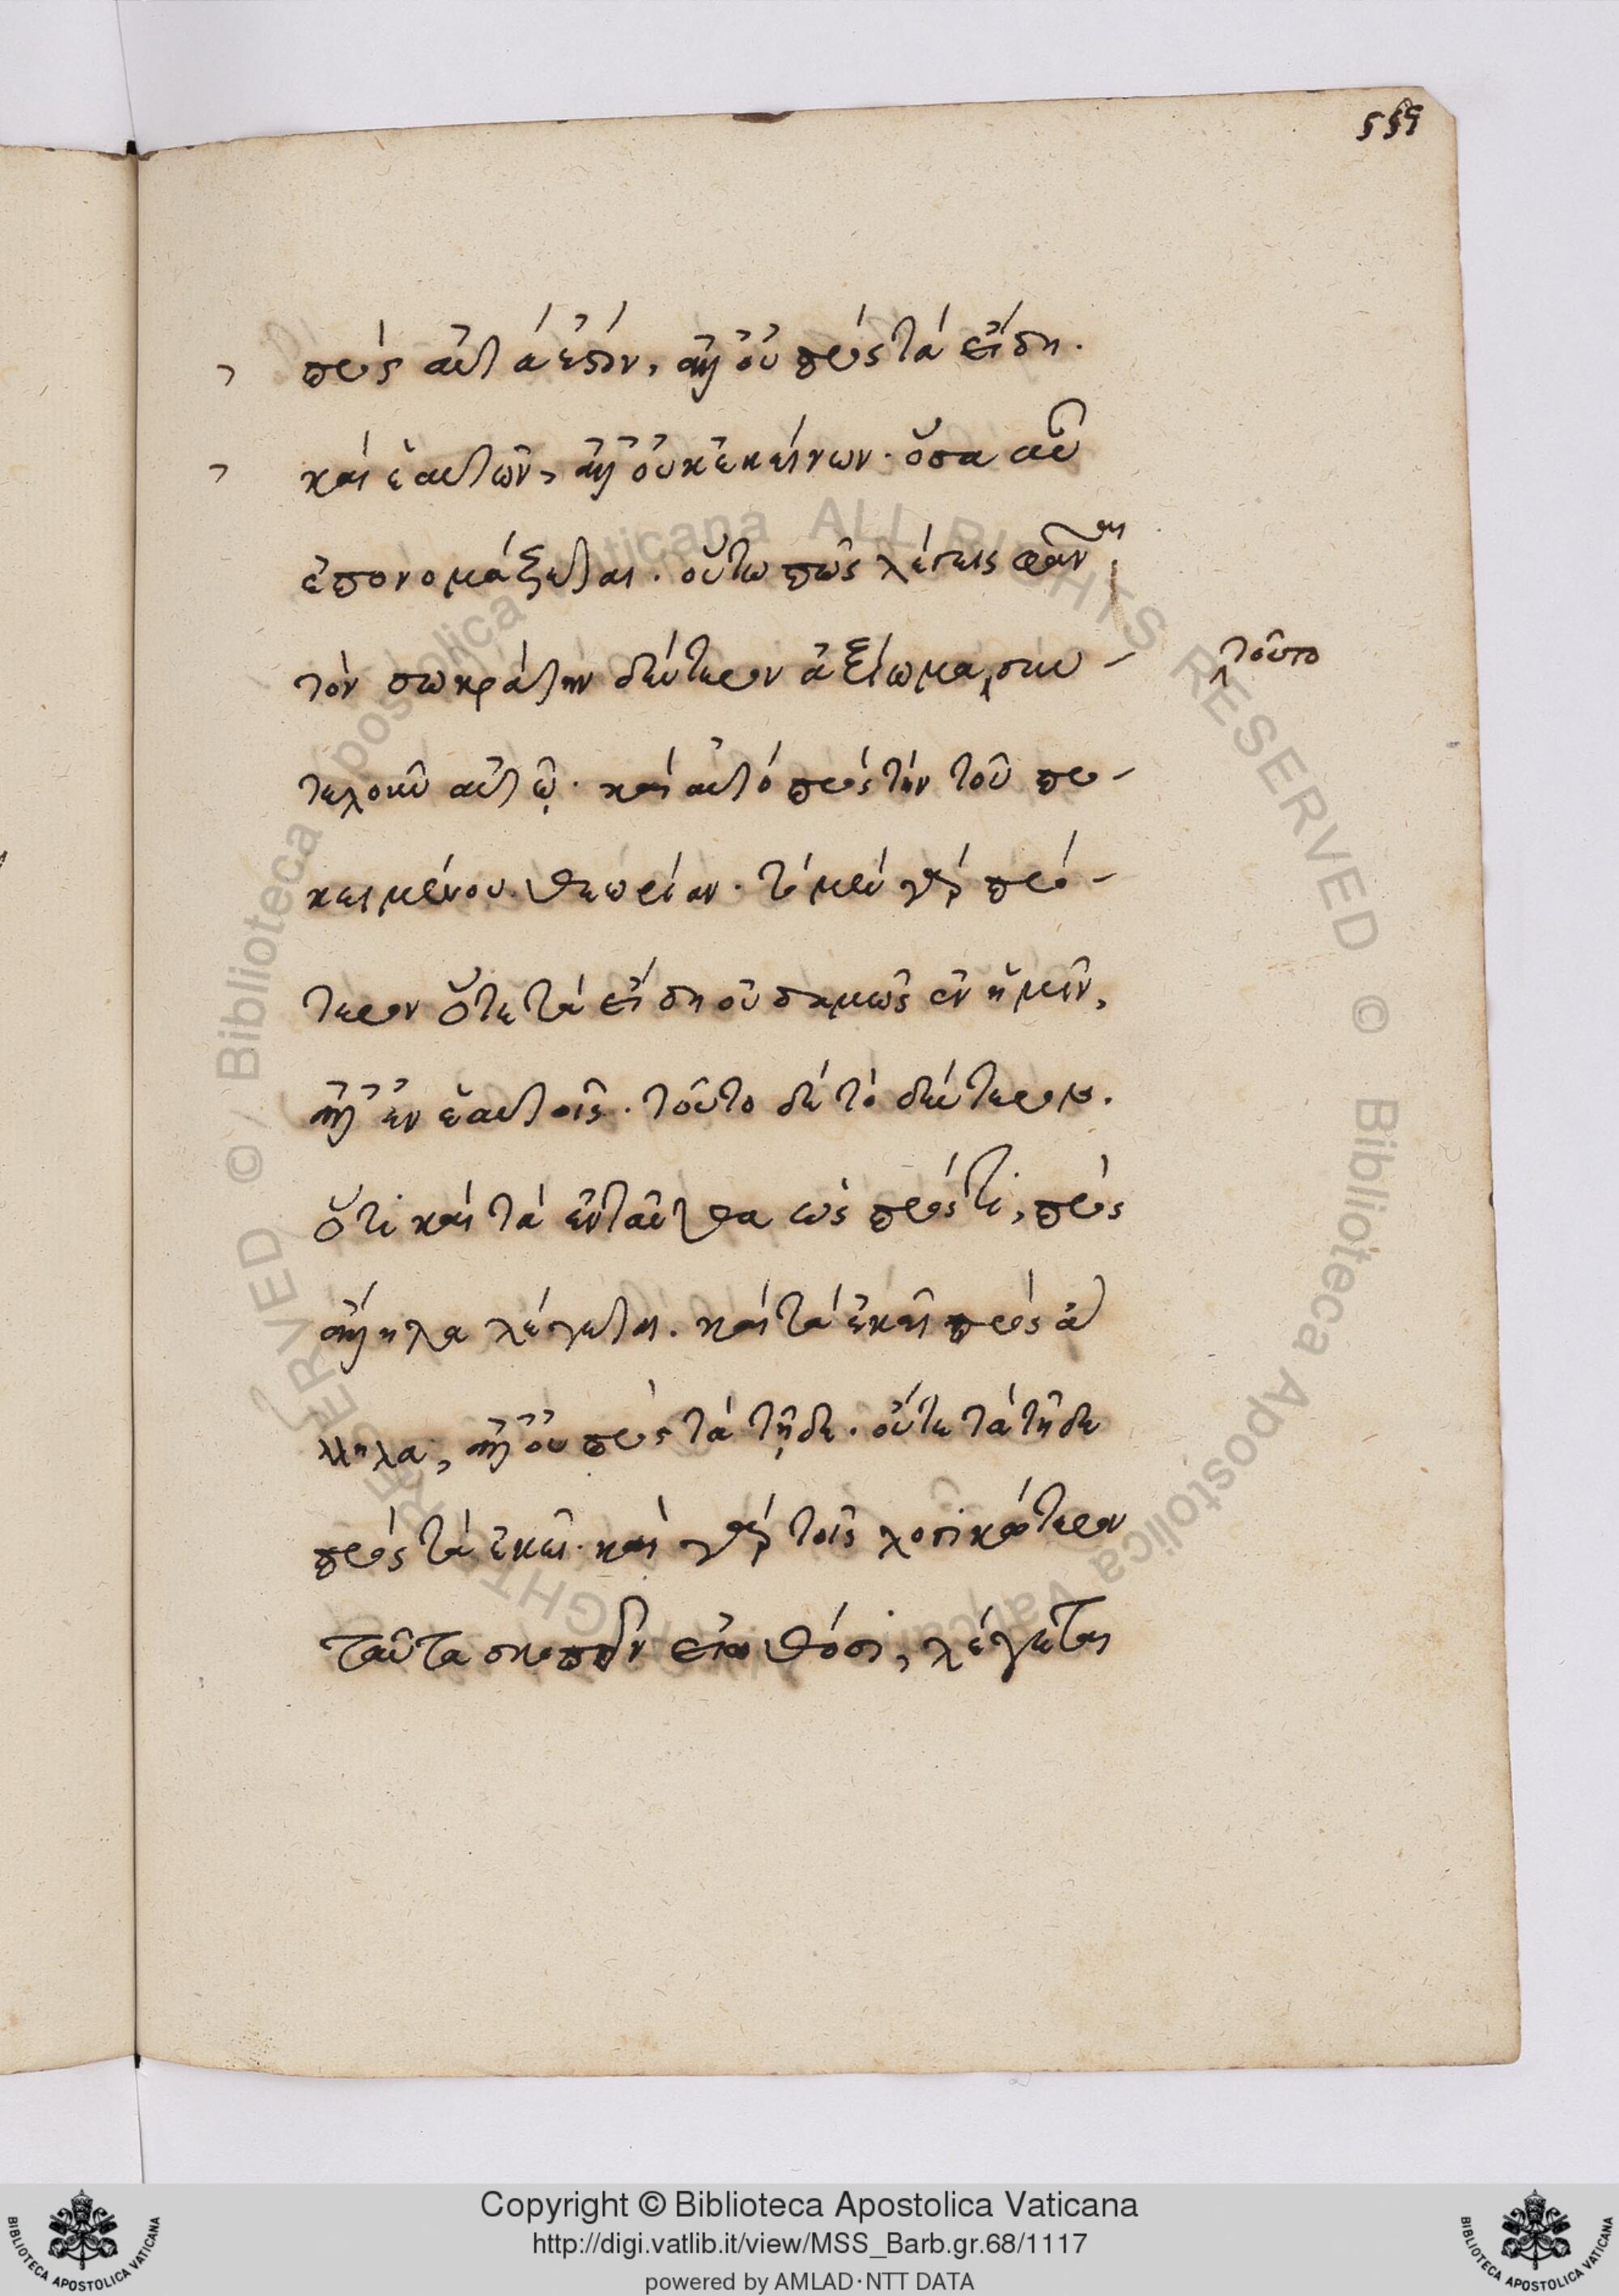 559
πρός αὐτά ἐστιν, ἀλλ' οὐ πρός τά εἴδη.
καί ἑαυτῶν, ἀλλ' οὐκ ἐκείνων. ὅσα αὖ
ἐπονομάζεται. οὕτω πῶς λέγεις φάναι
τόν σωκράτην δεύτερον ἀξίωμα συν-
τοῦτο
τελοῦν αὐτῷ. καί αὐτό πρός τήν τοῦ προ-
κειμένου θεωρίαν. τό μέν γάρ πρό-
τερον ὅτι τά εἴδη οὐδαμῶς ἐν ἡμῖν,
ἀλλ' ἐν ἑαυτοῖς. τοῦτο δέ τό δεύτερον.
ὅτι καί τά ἐνταῦθα ὡς πρός τι, πρός
ἄλληλα λέγεται. καί τά ἐκεῖ πρός ἄλ
ληλα, ἀλλ' οὐ πρός τά τῇδε. οὔτε τά τῇδε
πρός τά ἐκεῖ. καί γάρ τοῖς λογικώτερον
ταῦτα σκοπεῖν εἰωθόσι, λέγεται
Copyright © Biblioteca Apostolica Vaticana
http://digi.vatlib.it/view/MSS_Barb.gr.68/1117
powered by AMLAD·NTT DATA
BIBLIOTECA APOSTOLICA VATICANA
BIBLIOTECA APOSTOLICA VATICANA